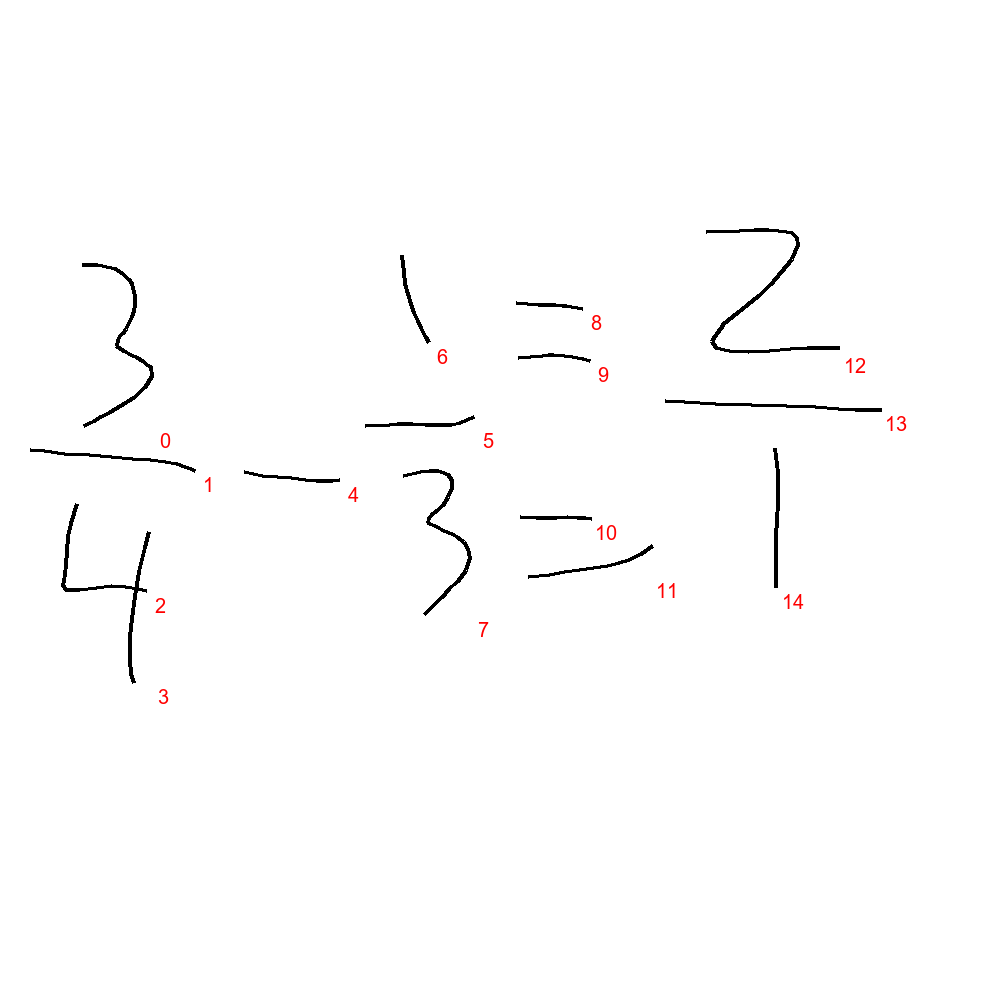 3 1 = 2
— - — —
4 3 = 1
0 1 2 3 4 5 6 7 8 9 10 11 12 13 14